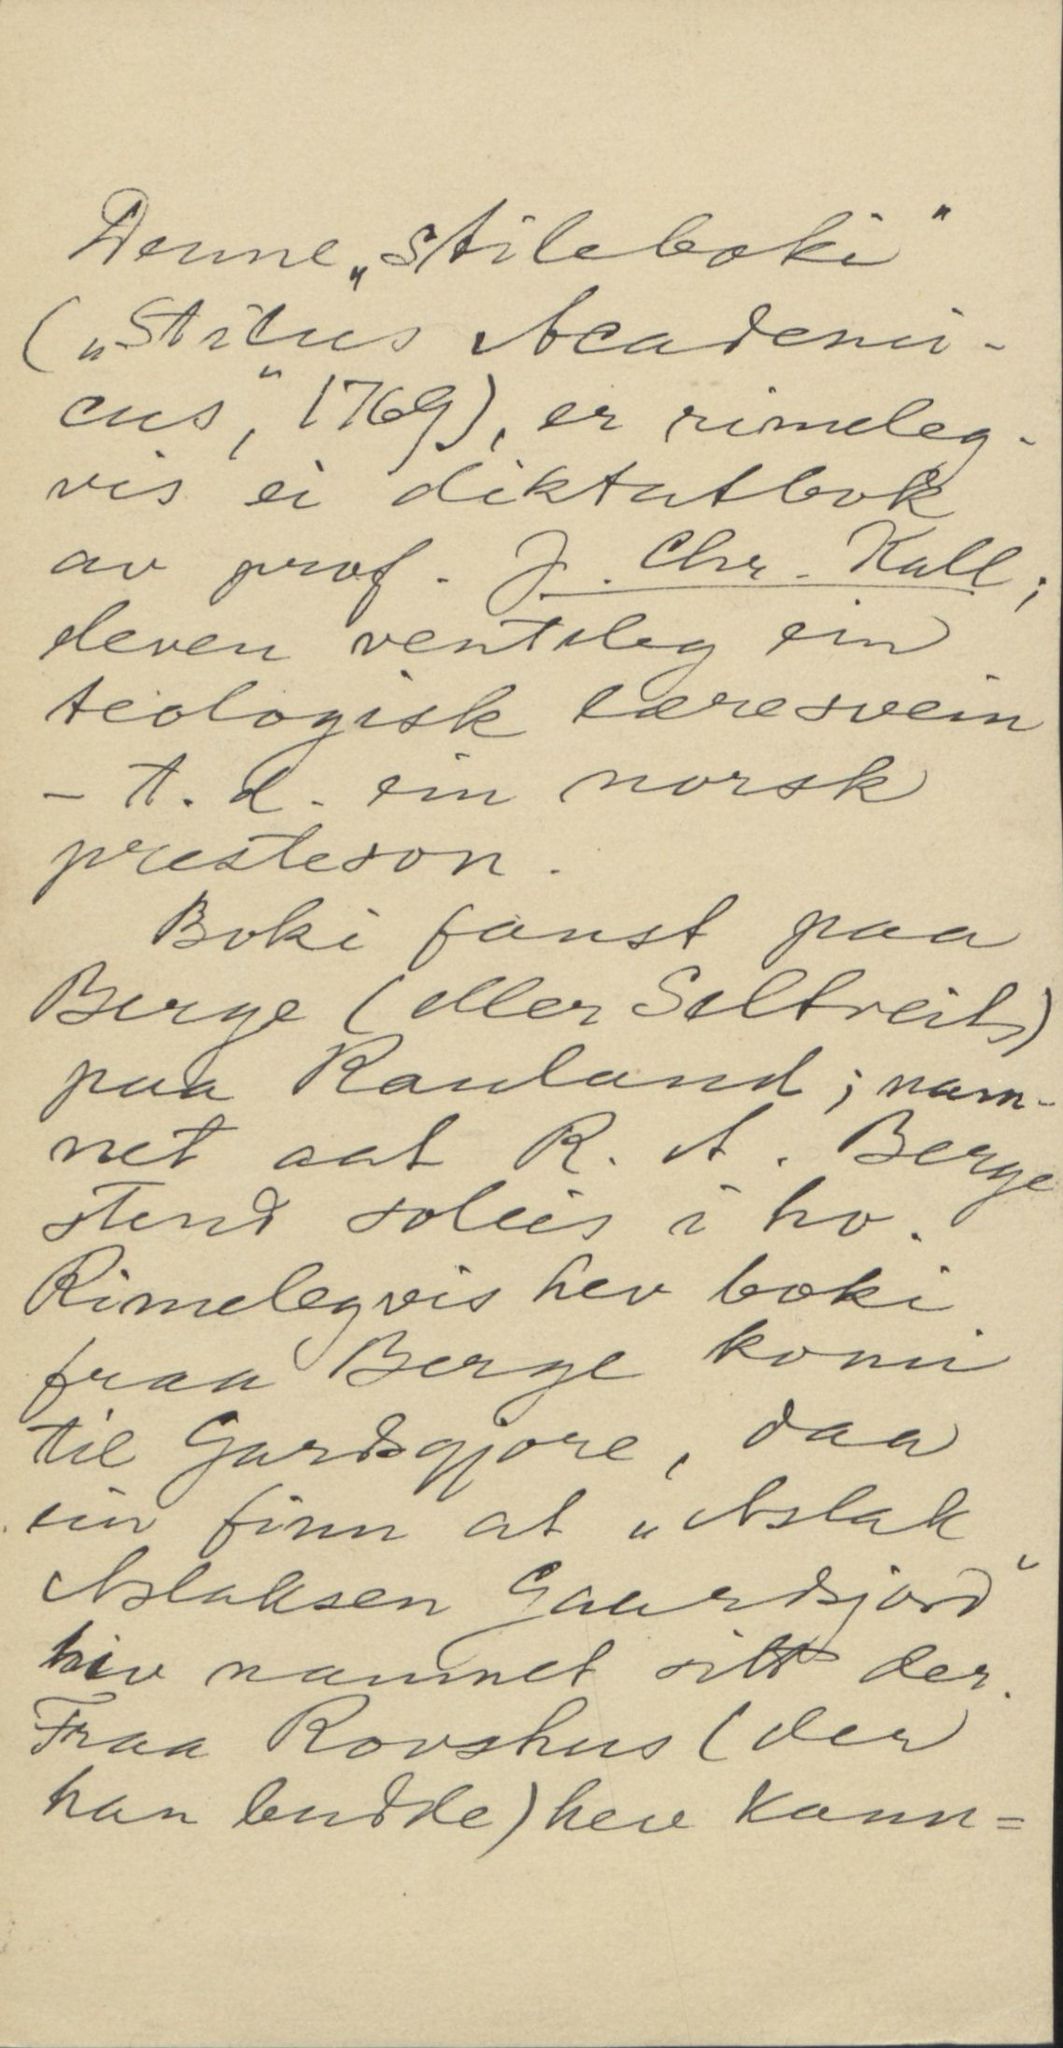 Denne „stileboki"
(„Stilus Academi-
cus", 1769), er rimeleg-
vis ei diktatbok
av prof. J. Chr. Kall;
eleven venteleg ein
teologisk læresvein
– t. d. ein norsk
presteson.
Boki fanst paa
Berge (eller Seltveit)
paa Rauland; nam-
net aat R. A. Berge
stend soleis i ho.
Rimelegvis hev boki
fraa Berge komi
til Gardsgjore, daa
ein finn at „Aslak
Aslaksen Gaardsjord"
hev namnet sitt der.
Fraa Rovshus (der
han budde) hev kann=